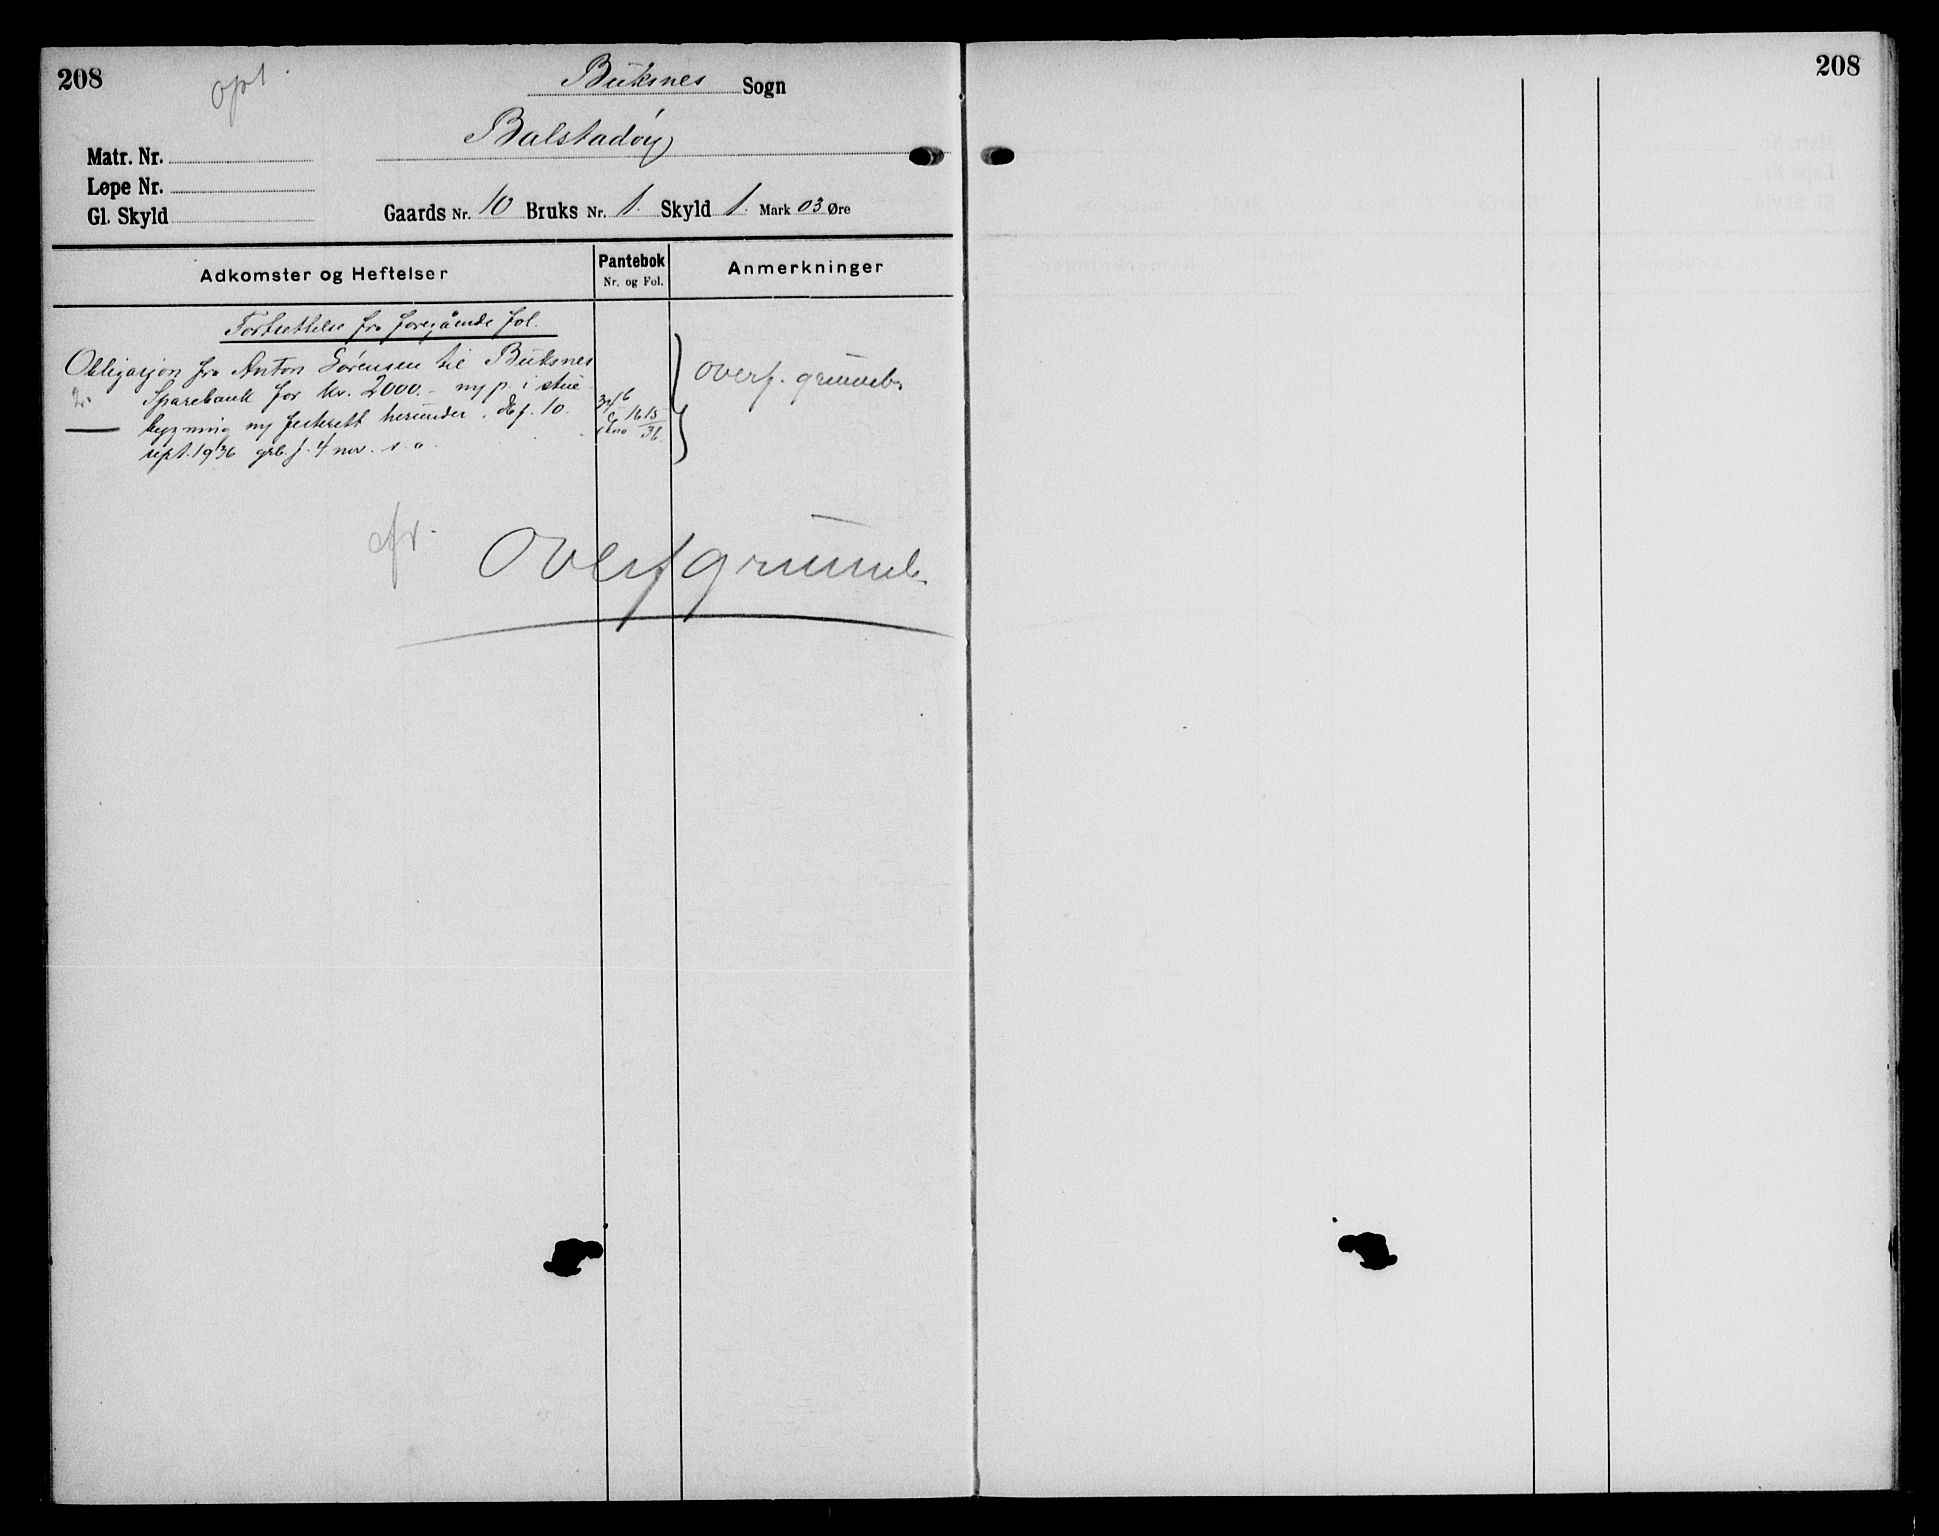 208
opt.
Buksnes Sogn
Balstadøy
Matr. Nr.
Løpe Nr.
Gl. Skyld
Gaards Nr. 10 Bruks Nr. 1. Skyld 1. Mark 03 Øre
Adkomster og Heftelser
Pantebok
Nr. og Fol.
Anmerkninger
Fortsettelse fra foregående fol.
Obligasjon fra Anton Sørensen til Buksnes
2. Sparebank for kr. 2000.- m/ p. i stue
bygning m/ festerett herunder. d/ 10.
sept. 1936 glb. f. 4 nov. s. a.
1615
36
overf. grunnb.
cfr.
Overf grunnb.
208